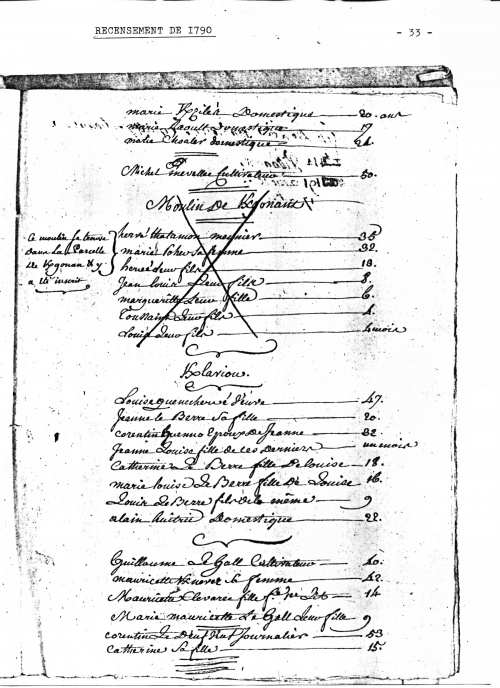 RECENSEMENT DE 1790
- 33 -
marie Domestique 20. ans
marie Raoult Domestique 19
marie domestique 24.
Michel Cultivateur 50.
Moulin De Kgonant
ce moulin se trouve
Dans La Parcelle
De Kgonan
a été inscrit
hervé meunier 38
marie sa femme 32.
hervé Leur fils 13.
Jean Louis Leur fils 8.
margueritte Leur fille 6.
Toussaint Leur fils 4.
Louis Leur fils 4 mois
Klariou.
Louise veuve 47.
Jeanne le Berre Sa fille 20.
corentin Guenno Epoux De Jeanne 32.
Jeanne Louise fille de Ces Derniers un mois
Catherine Le Berre fille De Louise 18.
marie Louise Le Berre fille De Louise 16.
Louis Le Berre fils de la même 9
alain Domestique 22.
Guillaume Le Gall Cultivateur 40.
mauricette Sa femme 42.
Mauricette fille 14
Marie mauricette Le Gall Leur fille 9
corentin Journalier 53
catherine Sa fille 15.